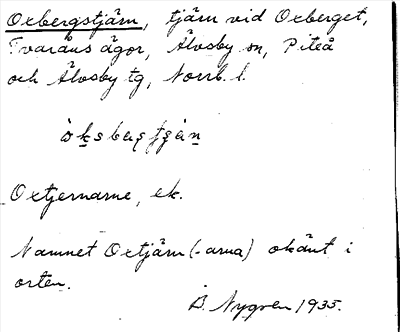 Oxbergstjärn, tjärn vid Oxberget,
Tvaråns ägor, Älvsby sn, Piteå
och Älvsby tg, Norrb. l.
Oxtjernarne, ek.
Namnet Oxtjärn (-arna) okänt i
orten.
B. Nygren 1935.